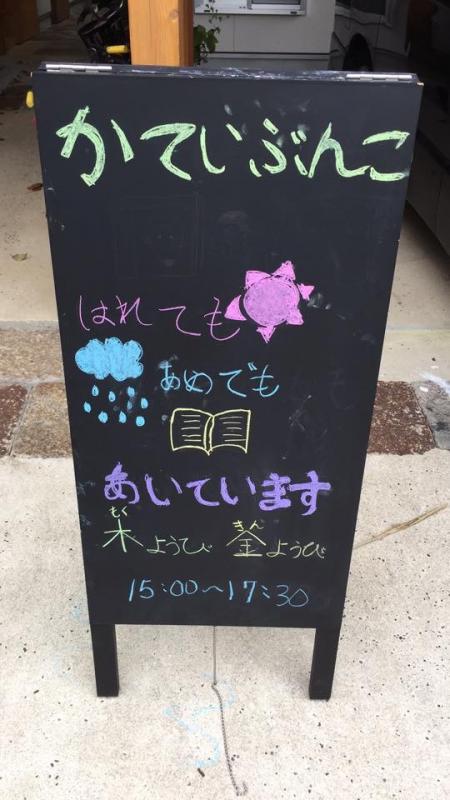 かていぶんこ
はれても
あめでも
あいています
木もくようび 金きんようび
15:00〜17:30